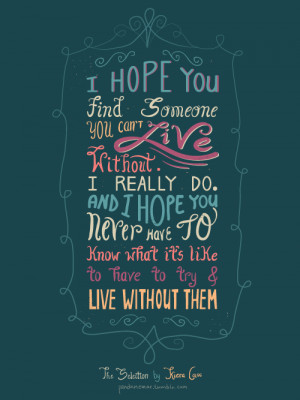 I HOPE YOU
find Someone
you can't Live
Without.
I REALLY DO.
AND I HOPE YOU
Never HAVE TO
Know what it's like
to have to try &
LIVE WITHOUT THEM
The Selection by Kiera Cass